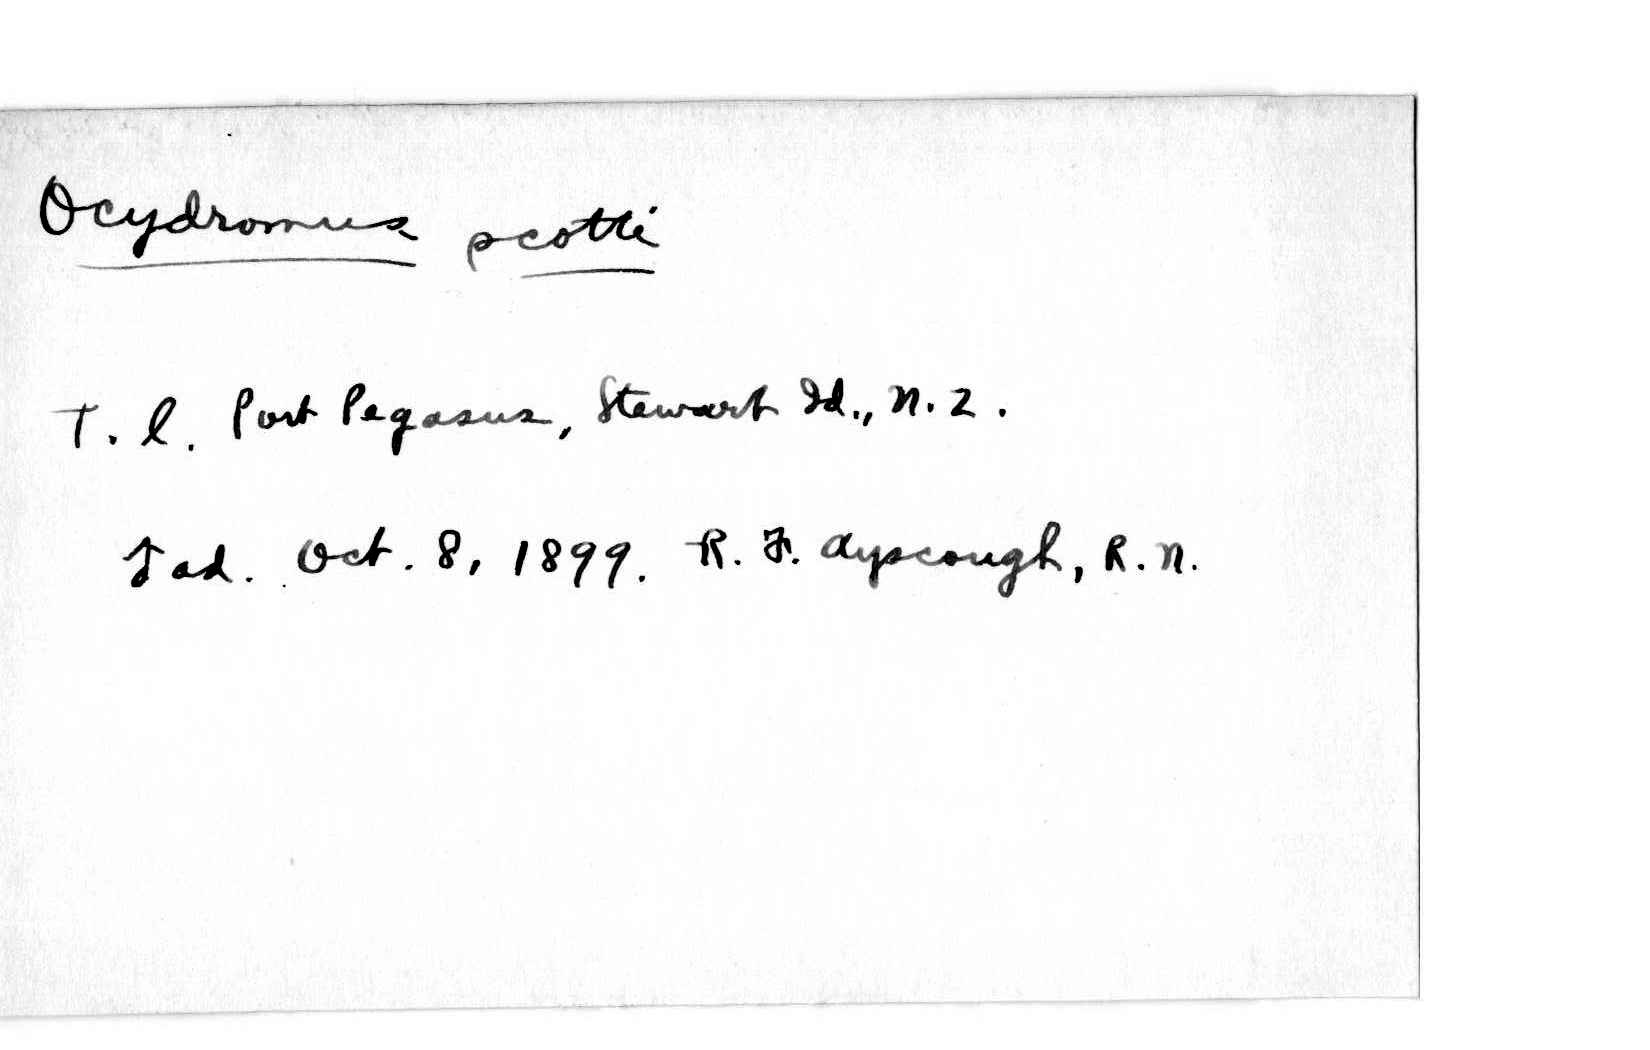 Ocydromus scotti
T. l. Port Pegasus, Stewart Id., N. Z.
♂ ad. Oct. 8, 1899. R. F. Ayscough, R. N.